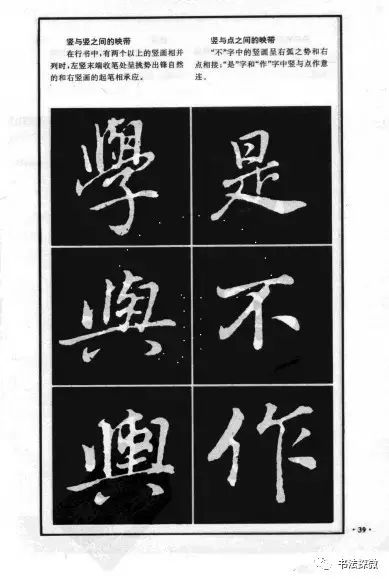 竖与竖之间的映带
在行书中，有两个以上的竖画相并
列时，左竖末端收笔处呈挑势出锋自然
的和右竖画的起笔相承应。
竖与点之间的映带
“不”字中的竖画呈右弧之势和右
点相接；“是”字和“作”字中竖与点作意
连。
學 是
與 不
作
·39·
书法探微